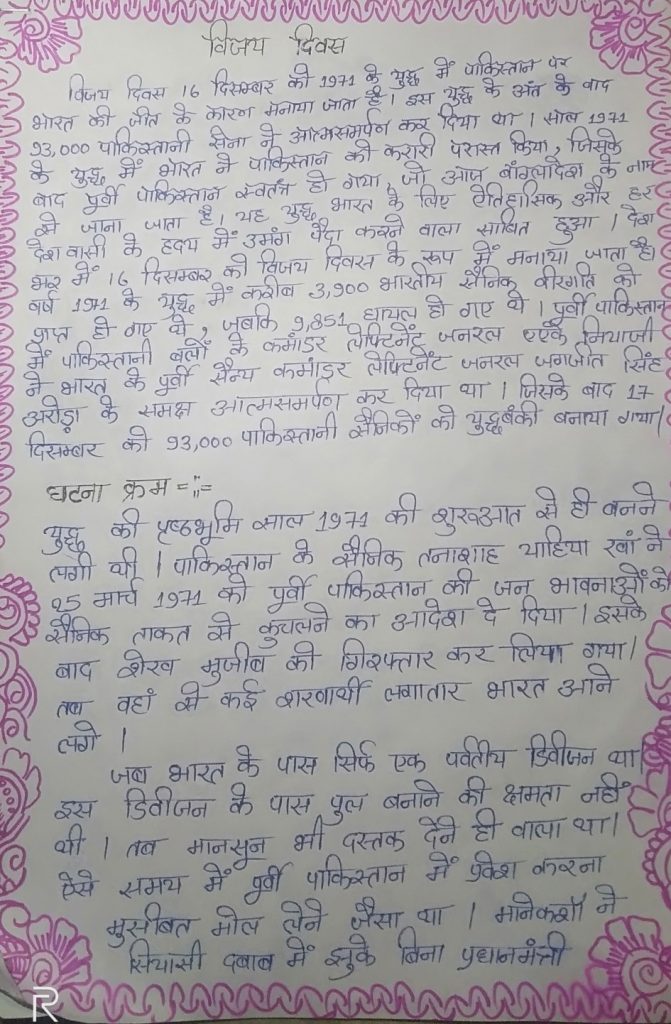 विजय दिवस
विजय दिवस 16 दिसम्बर को 1971 के युद्ध में पाकिस्तान पर
भारत की जीत के कारण मनाया जाता है। इस युद्ध के अंत के बाद
93,000 पाकिस्तानी सेना ने आत्मसमर्पण कर दिया था । साल 1971
के युद्ध में भारत ने पाकिस्तान को करारी परास्त किया, जिसके
बाद पूर्वी पाकिस्तान स्वतंत्र हो गया, जो आज बांग्लादेश के नाम
से जाना जाता है। यह युद्ध भारत के लिए ऐतिहासिक और हर
देश वासी के ह्रदय में उमंग पैदा करने वाला साबित हुआ । देश
भर में 16 दिसम्बर को विजय दिवस के रूप में मनाया जाता है।
वर्ष 1971 के युद्ध में करीब 3,900 भारतीय सैनिक वीरगति को
प्राप्त हो गए थे, जबकि 9,851 घायल हो गए थे । पूर्वी पाकिस्तान
में पाकिस्तानी बलों के कमांडर लेफ्टिनेंट जनरल एएके नियाजी
ने भारत के पूर्वी सैन्य कमांडर लेफ्टिनेंट जनरल जगजीत सिंह
अरोड़ा के समक्ष आत्मसमर्पण कर दिया था । जिसके बाद 17
दिसम्बर को 93,000 पाकिस्तानी सैनिकों को युद्धबंकी बनाया गया।
घटना क्रम =;;=
युद्ध की पृष्ठभूमि साल 1971 की शुरुआत से ही बनने
लगी थी । पाकिस्तान के सैनिक तनाशाह याहिया खां ने
25 मार्च 1971 को पूर्वी पाकिस्तान की जन भावनाओं के
सैनिक ताकत से कुचलने का आदेश दे दिया । इसके
बाद शेख मुजीब को गिरफ्तार कर लिया गया।
तब वहां से कई शरणार्थी लगातार भारत आने
लगे ।
जब भारत के पास सिर्फ एक पर्वतीय डिवीजन था।
इस डिवीजन के पास पुल बनाने की क्षमता नहीं
थी । तब मानसून भी दस्तक देने ही वाला था।
ऐसे समय में पूर्वी पाकिस्तान में प्रवेश करना
मुसीबत मोल लेने जैसा था । मानेकशॉ ने
सियासी दबाब में झुके बिना प्रधानमंत्री
R